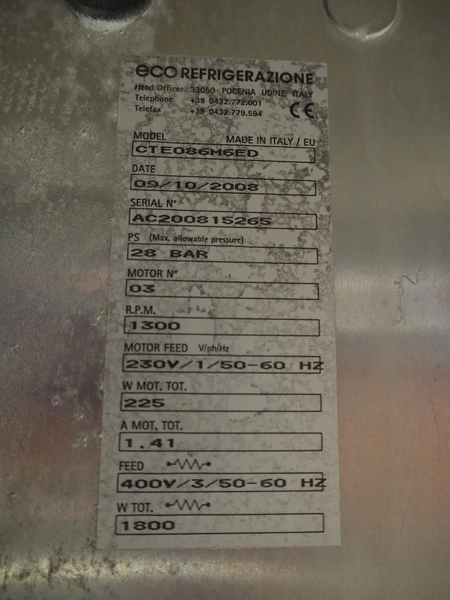 eco REFRIGERAZIONE
Head Office: 33050 POCENIA UDINE ITALY
Telephone +39 0432.772.001
Telefax +39 0432.779.594
CE
MODEL MADE IN ITALY / EU
CTE086M6ED
DATE
09/10/2008
SERIAL N°
AC200815265
PS (Max. allowable pressure)
28 BAR
MOTOR N°
03
R.P.M.
1300
MOTOR FEED V/ph/Hz
230V/1/50-60 HZ
W MOT. TOT.
225
A MOT. TOT.
1.41
FEED
400V/3/50-60 HZ
W TOT.
1800